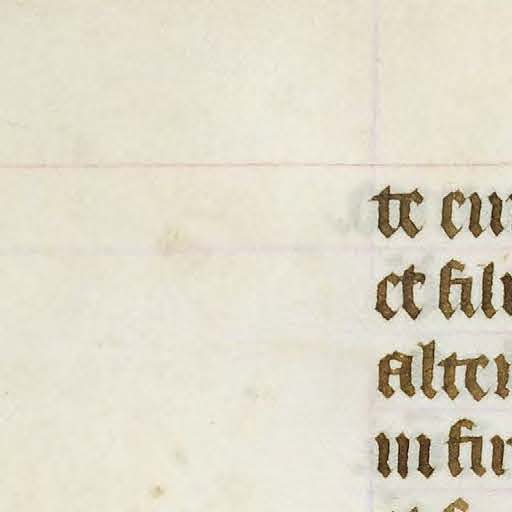 te cu
et fili
alter
in fir